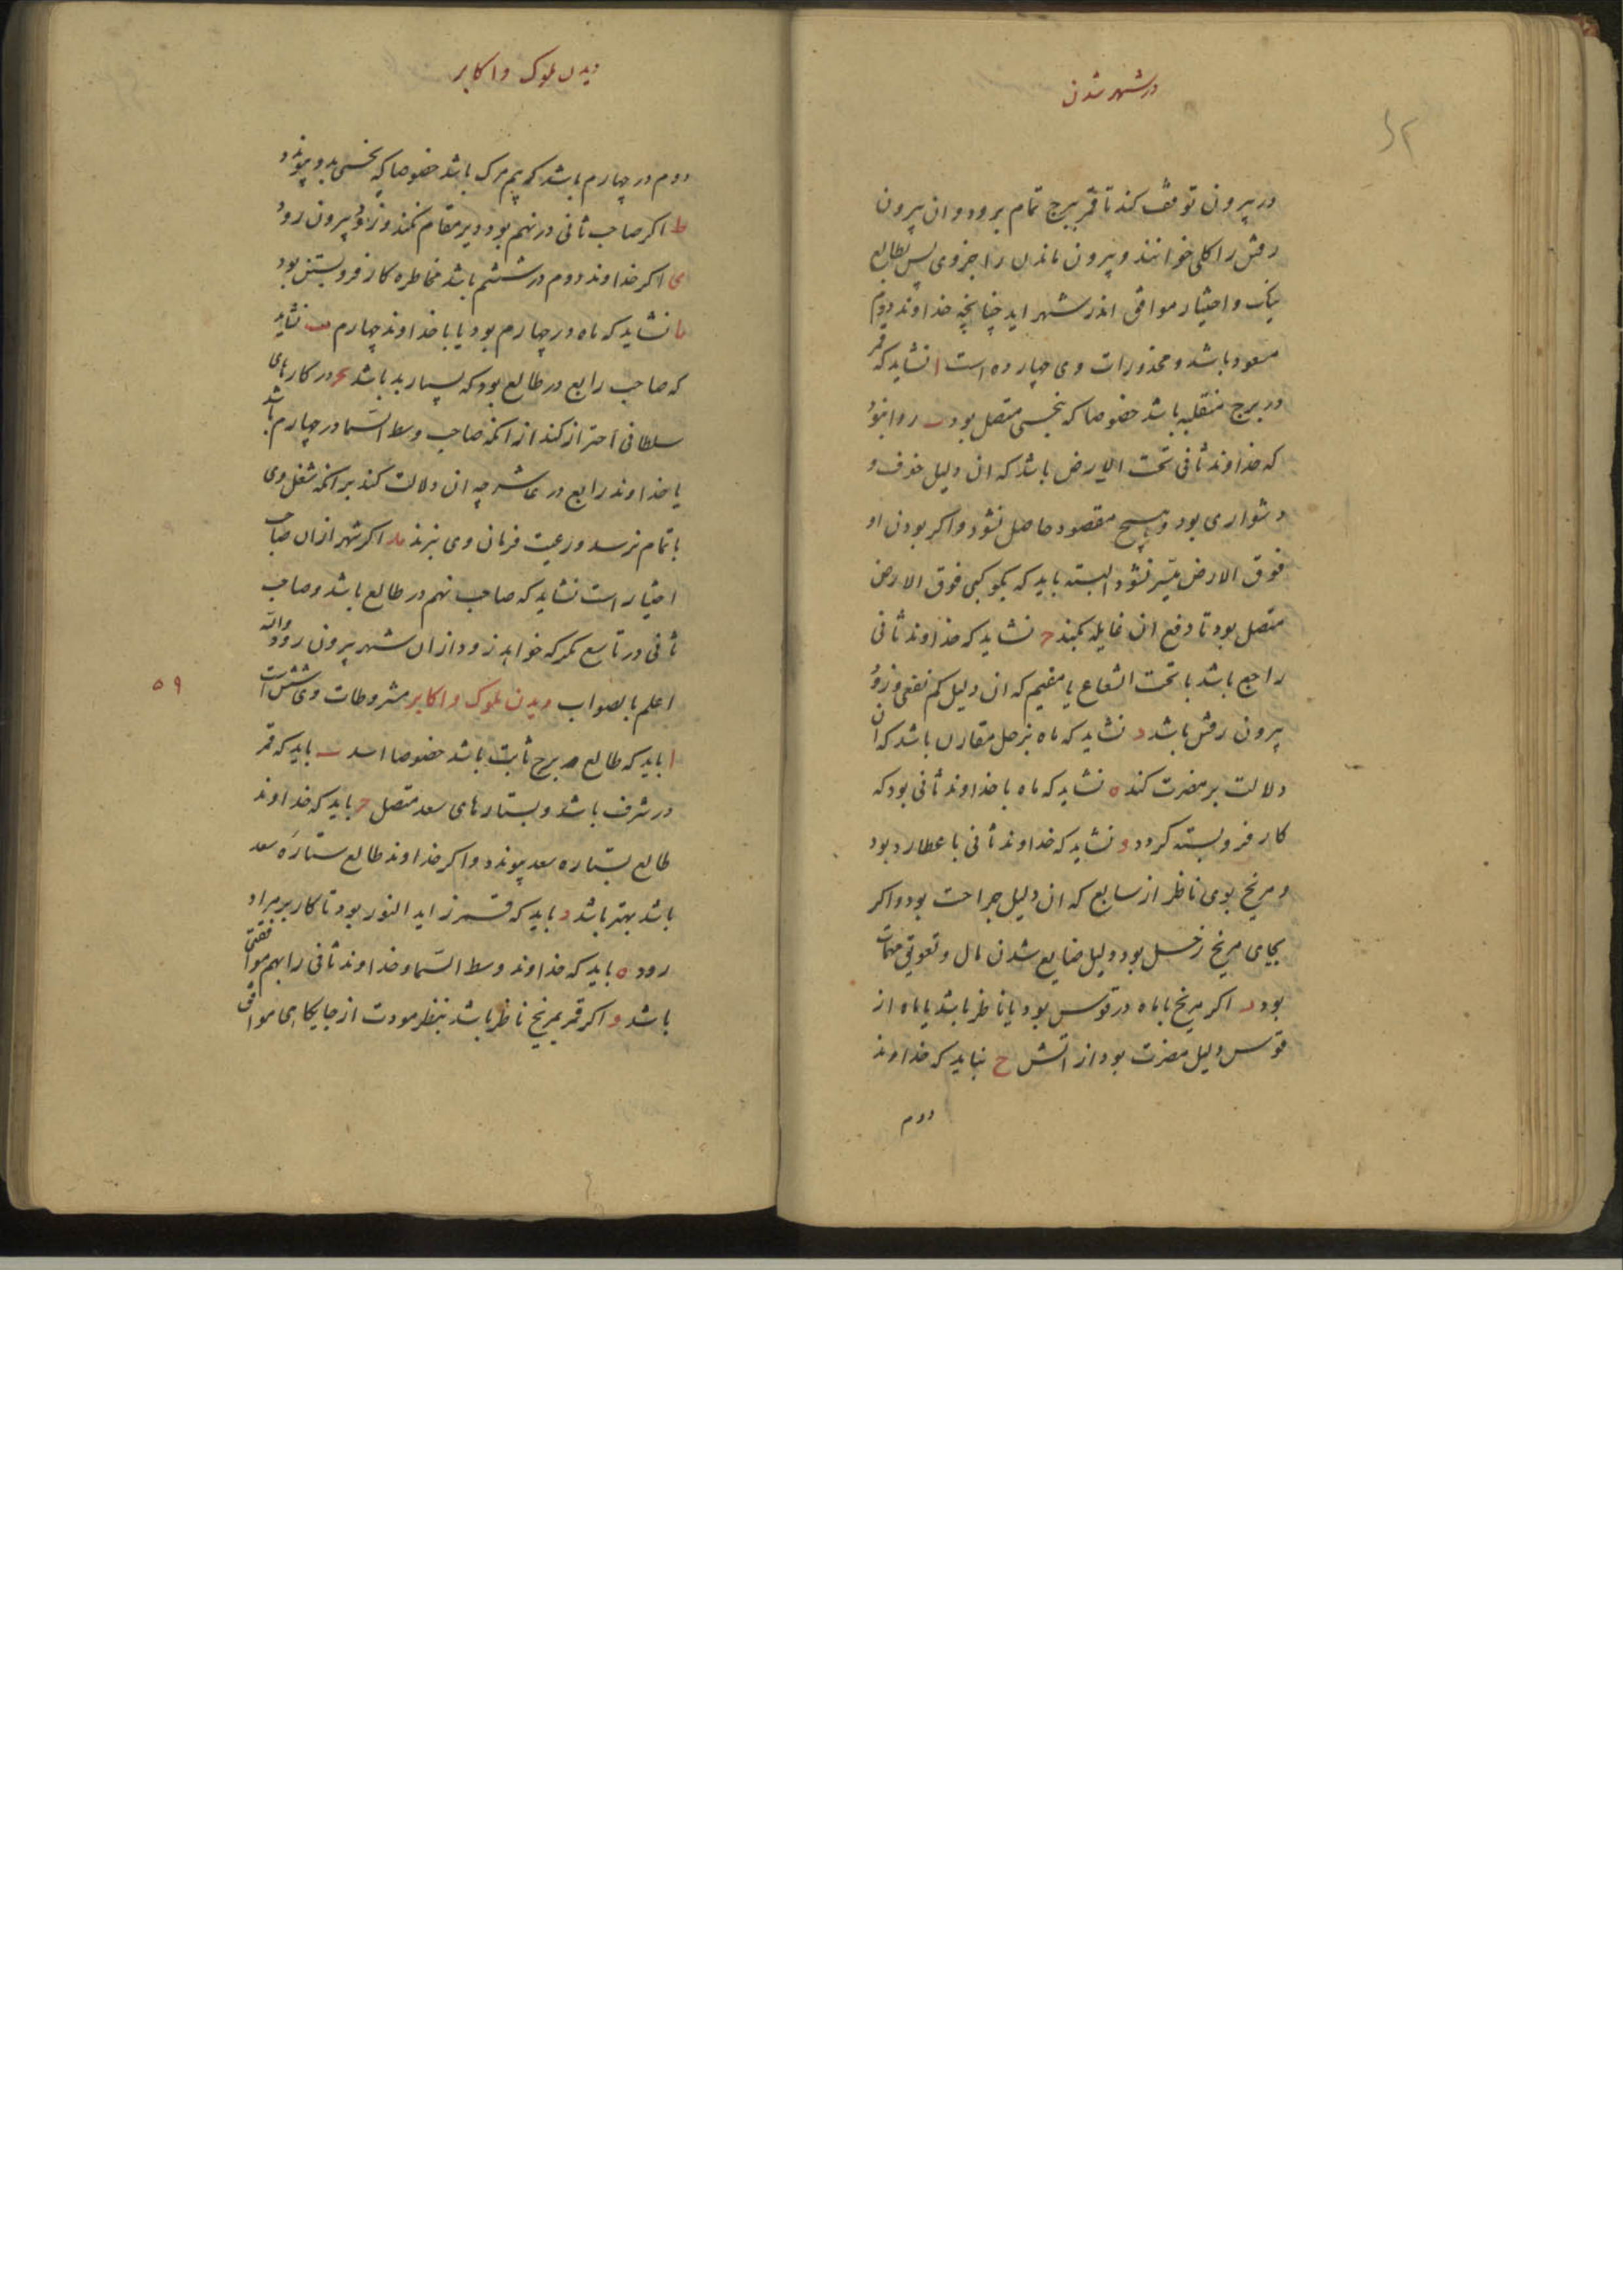 در شهر شدن
در بیرون توقف کند تا قمر ببرج تمام برود و ان بیرون
رفتن را کلی خوانند و بیرون ماندن را جزوی پس بطالع
نیک و اختیار موافق اندر شهر اید چنانچه خداوند دوم
مسعود باشد و محذورات وی چهارده است ا نشاید که قمر
در برج منقلبه باشد خصوصا که بنحسی متصل بود ب روا نبود
که خداوند ثانی تحت الارض باشد که ان دلیل خوف و
دشواری بود و هیچ مقصود حاصل نشود و اکر بودن او
فوق الارض میسر نشود البته باید که بکوکبی فوق الارض
متصل بود تا دفع ان غایله بکند ج نشاید که خداوند ثانی
راجع باشد یا تحت الشعاع یا مقیم که ان دلیل کم نفعی و زود
بیرون رفتن باشد د نشاید که ماه بزحل مقارن باشد که ان
دلالت بر مضرت کند ه نشاید که ماه با خداوند ثانی بود که
کار فروبسته کردد و نشاید که خداوند ثانی با عطارد بود
و مریخ بوی ناظر از سابع که ان دلیل جراحت بود و اکر
بجای مریخ زحل بود دلیل ضایع شدن مال و تعویق مهمات
بود ز اکر مریخ با ماه در قوس بود یا ناظر باشد یا ماه از
قوس دلیل مضرت بود از اتش ح نباید که خداوند
دوم
دیدن ملوک و اکابر
دوم در چهارم باشد که بیم مرک باشد خصوصا که نحسی بدو پیوندد
ط اکر صاحب ثانی در نهم بود دیر مقام نکند و زود بیرون رود
ی اکر خداوند دوم در ششم باشد مخاطره کار فروبستن بود
یا نشاید که ماه در چهارم بود یا با خداوند چهارم یب نشاید
که صاحب رابع در طالع بود که بسیار بد باشد یج در کارهای
سلطانی احتراز کند از انکه صاحب وسط السما در چهارم باشد
یا خداوند رابع در عاشر چه ان دلالت کند بر انکه شغل وی
باتمام نرسد و رعیت فرمان وی نبرند ید اکر شهر ازان صاحب
اختیار است نشاید که صاحب نهم در طالع باشد و صاحب
ثانی در تاسع مکر که خواهد زود ازان شهر بیرون رود والله
اعلم بالصواب دیدن ملوک و اکابر مشروطات وی شش است
۵۹
ا باید که طالع برج ثابت باشد خصوصا اسد ب باید که قمر
در شرف باشد و بستارهای سعد متصل ج باید که خداوند
طالع بستاره سعد پیوندد و اکر خداوند طالع ستاره سعد
باشد بهتر باشد د باید که قمر زاید النور بود تا کار بر مراد
رود ه باید که خداوند وسط السما و خداوند ثانی را بهم موافقتی
باشد و اکر قمر بمریخ ناظر باشد بنظر مودت از جایکاهی موافق